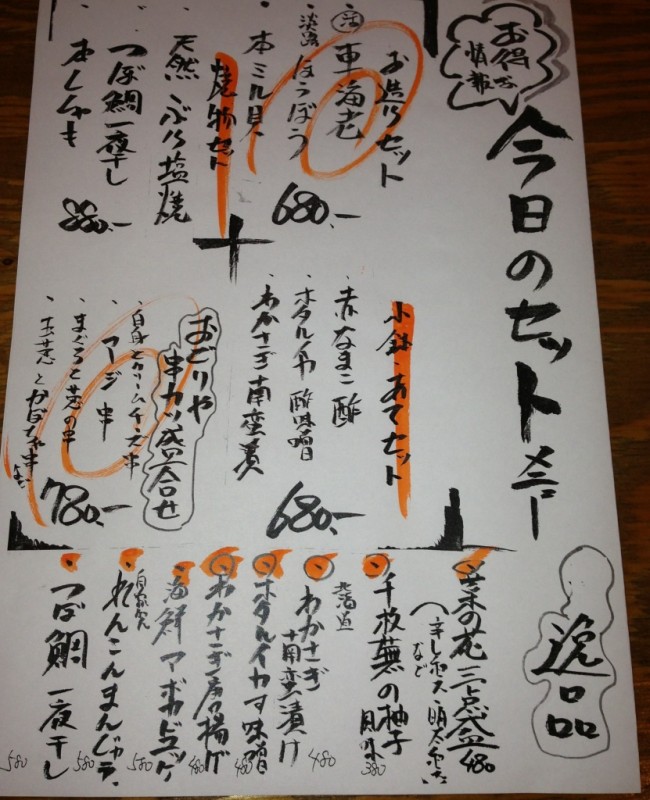 お得な
情報
今日のセットメニュー
お造りセット
・活車海老
・淡路ほうぼう
・本ミル貝
680.-
焼物セット
・天然ぶり塩焼
・つぼ鯛一夜干し
・本ししゃも
880.-
小鉢・あてセット
・赤なまこ酢
・ホタルイカ酢味噌
・わかさぎ南蛮漬
680.-
おどりや
串カツ盛合せ
・白身とクリームチーズ串
・マージ串
・まぐろと葱の串
・玉葱とかぼちゃ串など
780.-
逸品
菜の花三点盛
480
など
千枚蕪の柚子風味
380
北海道
わかさぎ南蛮漬け
480
ホタルイカす味噌
480
わかさぎ唐揚げ
480
海鮮アボカドユッケ
580
自家製
れんこんまんじゅう
580
つぼ鯛一夜干し
580